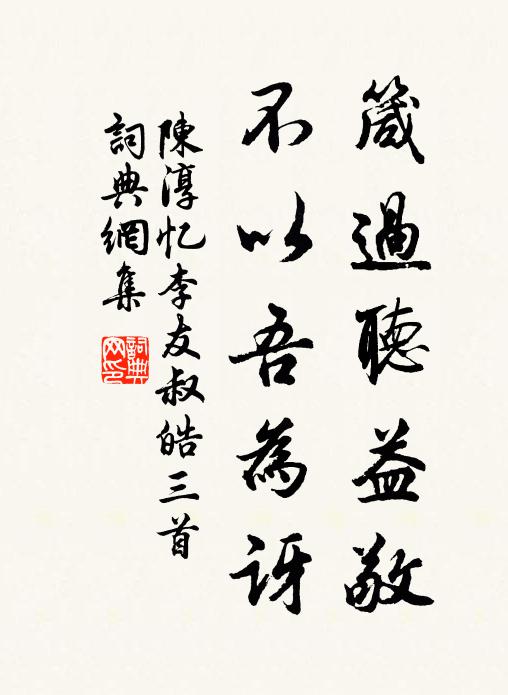 箴過聽益敬
不以吾為訝
陳淳忆李友叔皓三首
詞典網集
詞典網印